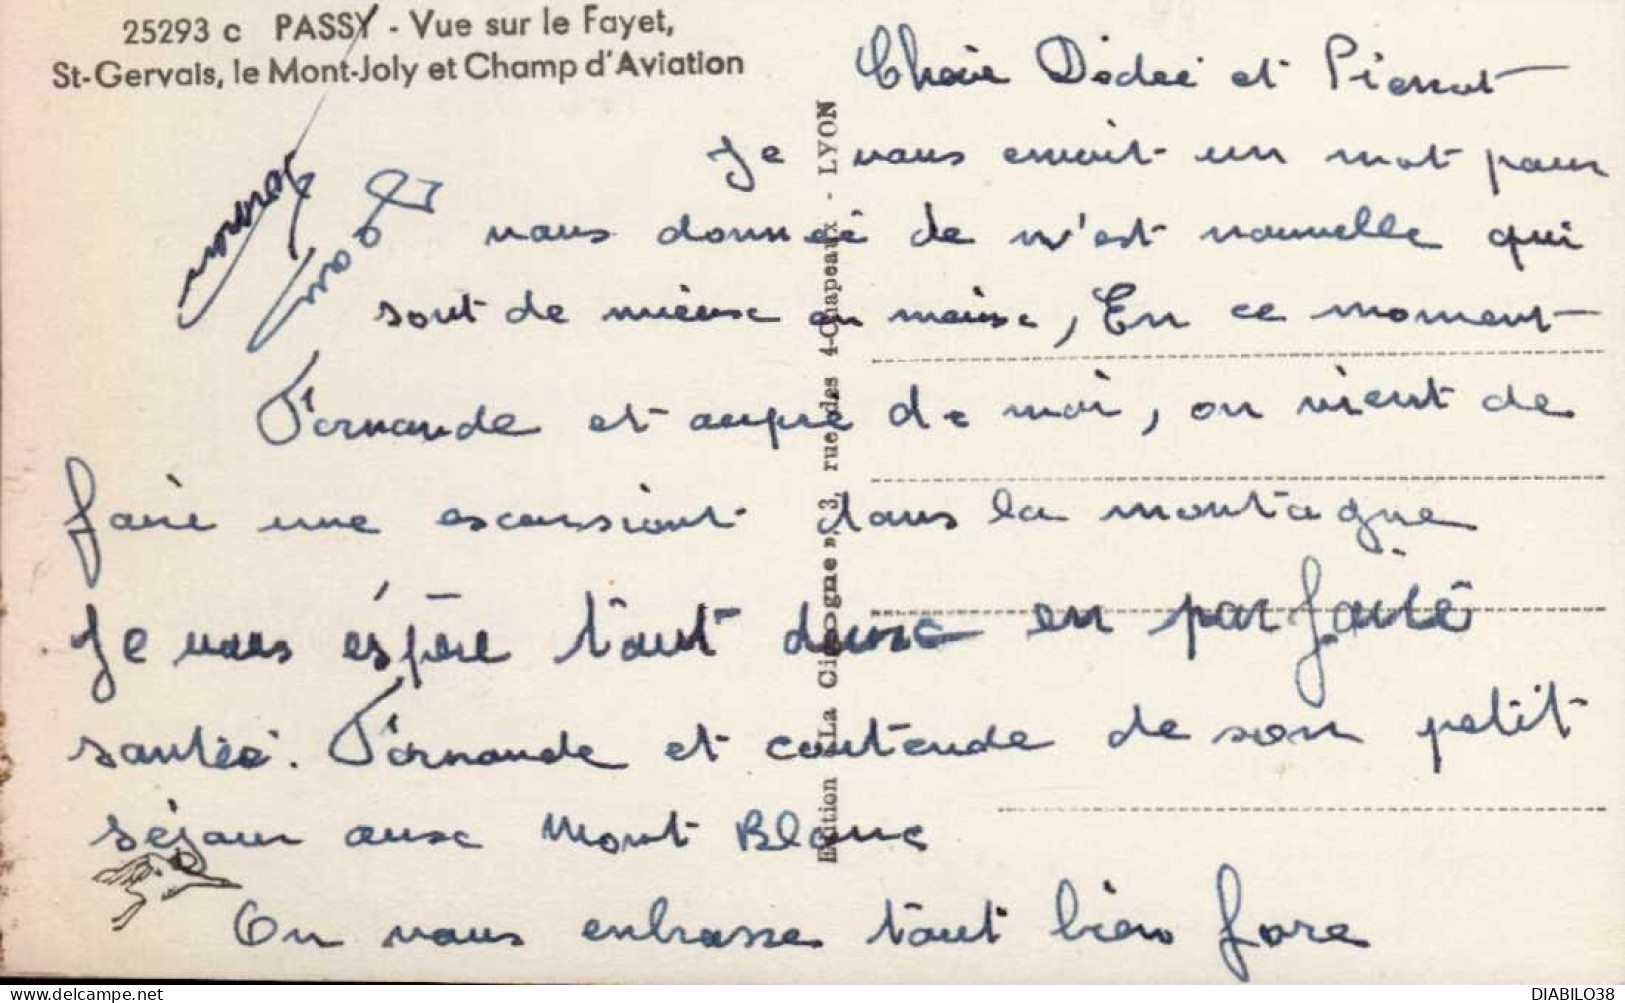 25293 c PASSY - Vue sur le Fayet,
St-Gervais, le Mont-Joly et Champ d'Aviation
Edition « La Cigogne », 3, rue des 4-Chapeaux - LYON
Chair Dédeé et Pierrot
Je vous envoit un mot pour
vous donneé de m'est nouvelle qui
sont de mieux en maise, En ce moment
Fernande et aupre de moi, on vient de
faire une escursiont dans la montagne
Je vous éspère tout deux en parfaite
santée. Fernande et contende de son petit
séjour aux Mont Blanc
On vous enbrasse tout bien fore
DIABILO38